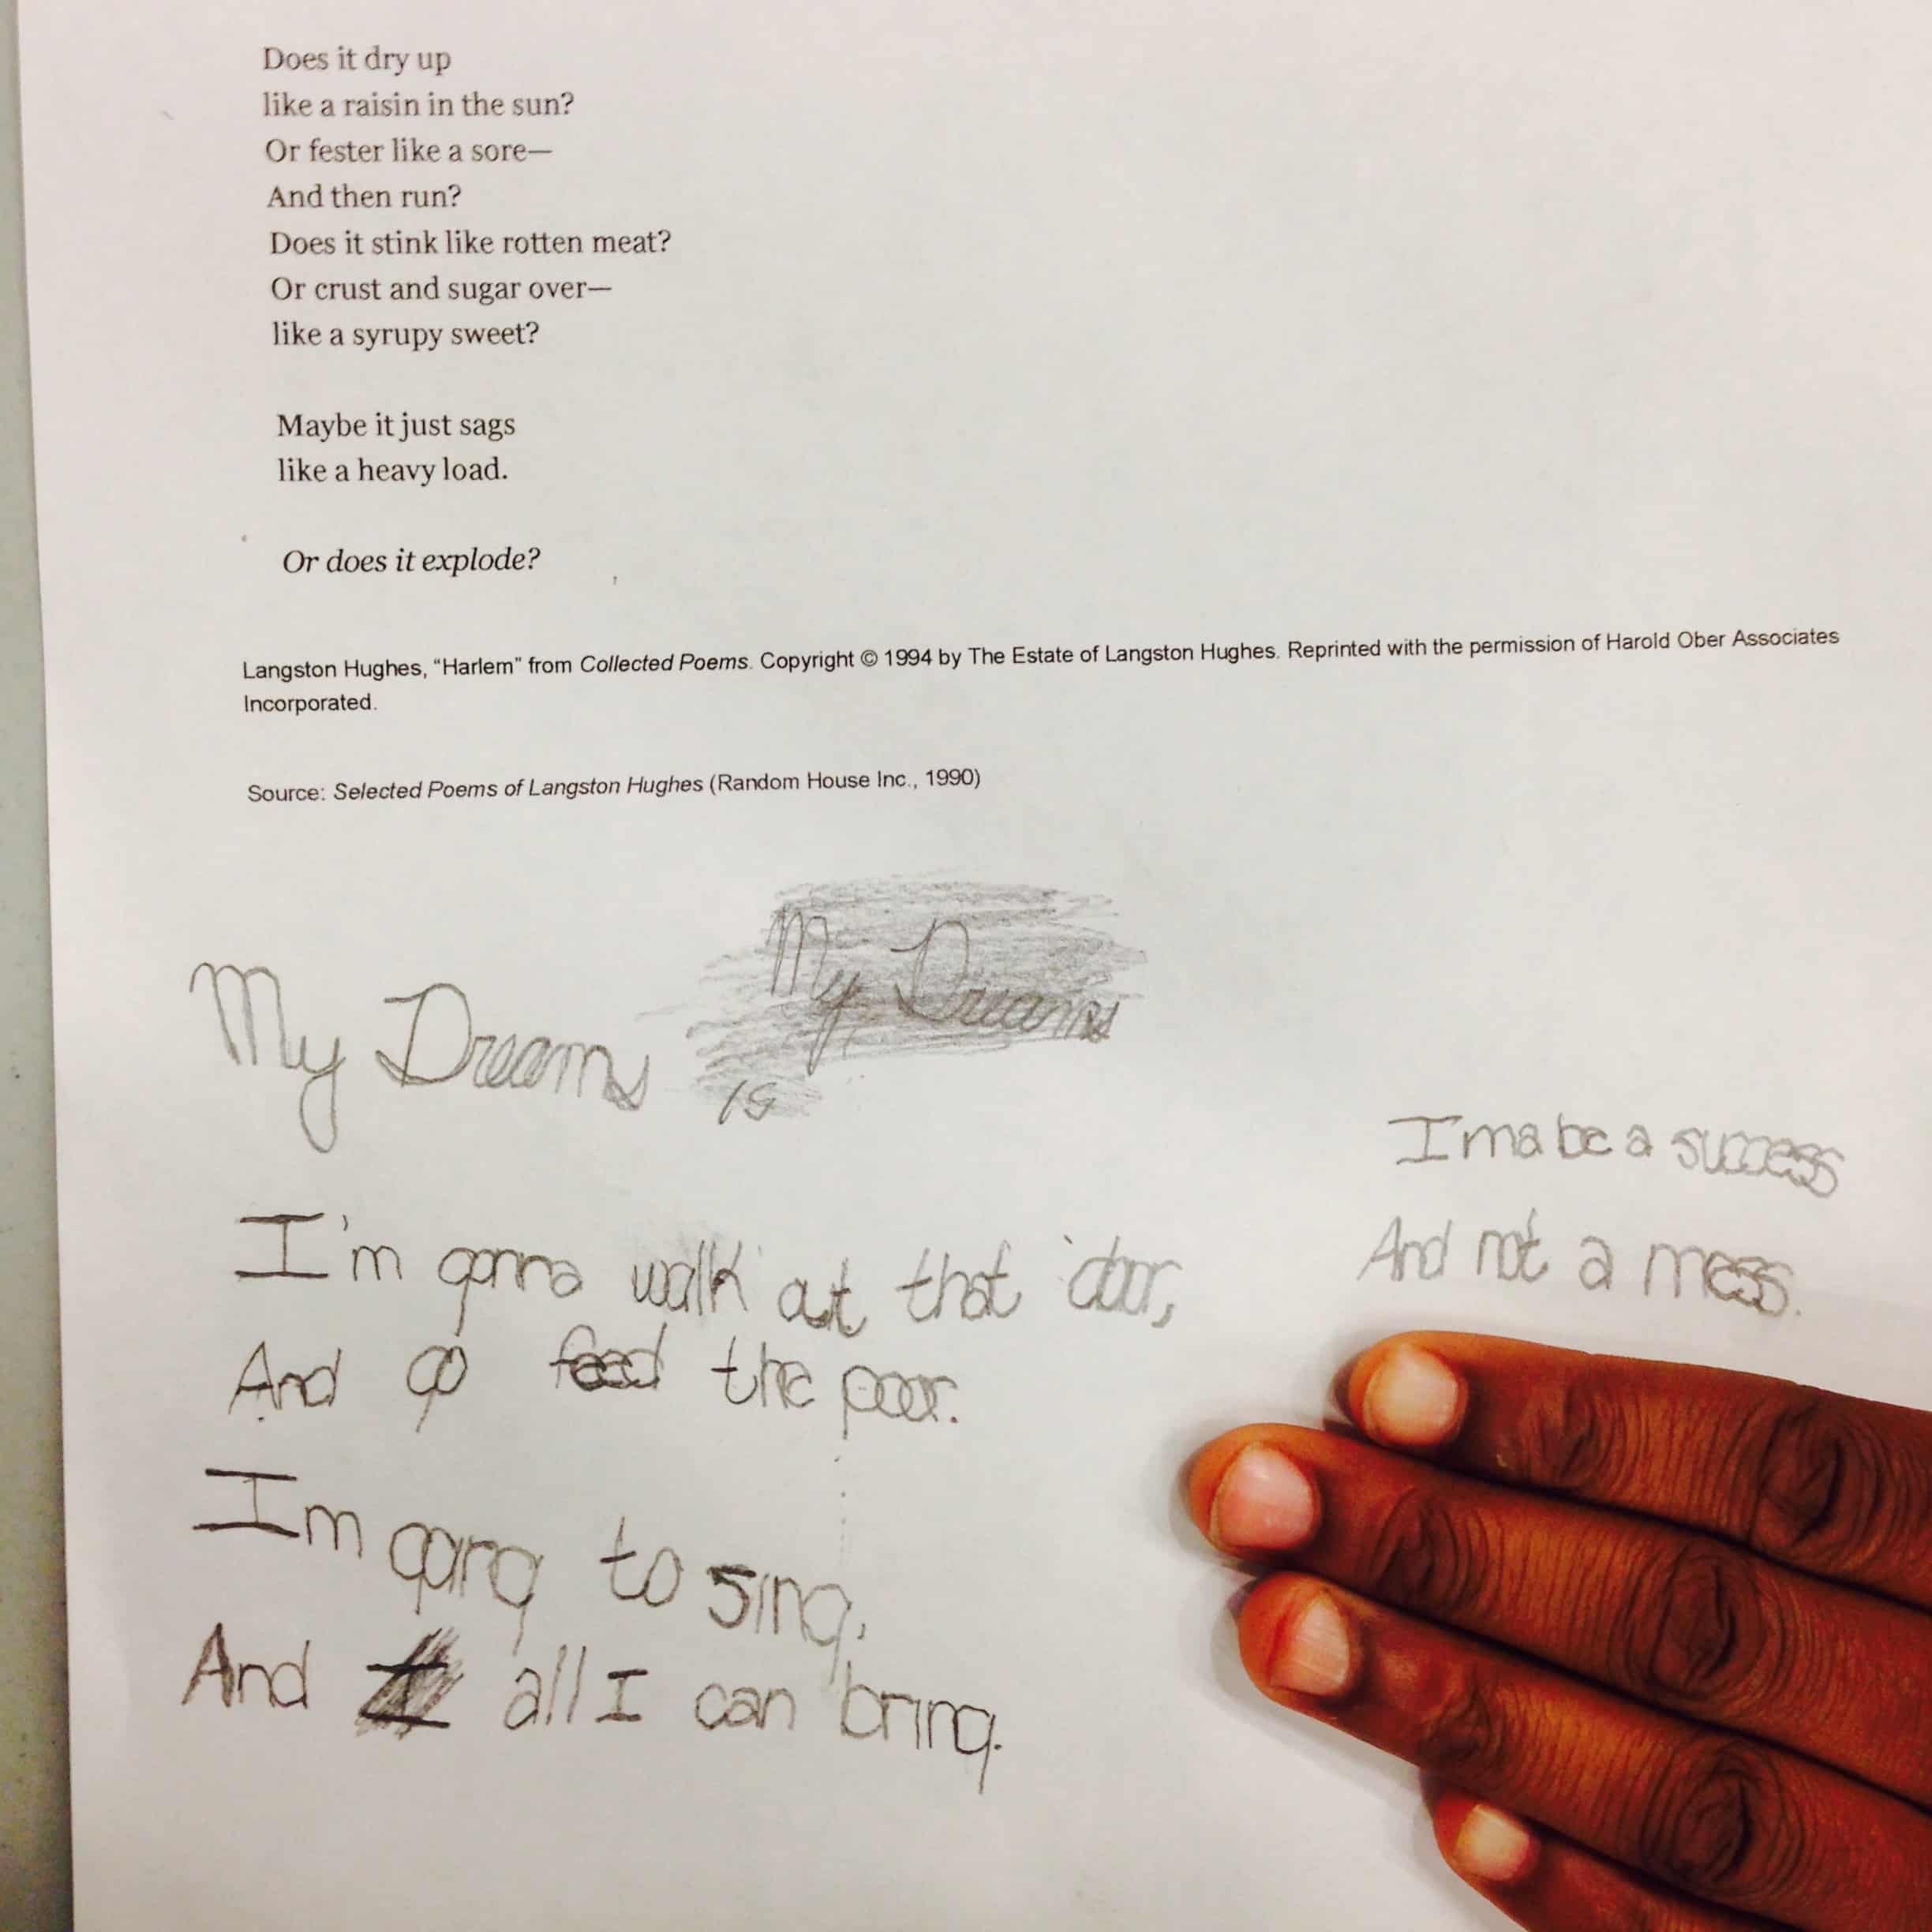 Does it dry up
like a raisin in the sun?
Or fester like a sore—
And then run?
Does it stink like rotten meat?
Or crust and sugar over—
like a syrupy sweet?
Maybe it just sags
like a heavy load.
Or does it explode?
Langston Hughes, “Harlem” from Collected Poems. Copyright © 1994 by The Estate of Langston Hughes. Reprinted with the permission of Harold Ober Associates
Incorporated.
Source: Selected Poems of Langston Hughes (Random House Inc., 1990)
My Dreams
My Dreams
is
I'm gonna walk out that door,
And go feed the poor.
Im going to sing,
And all I can bring.
Ima be a success
And not a mess.